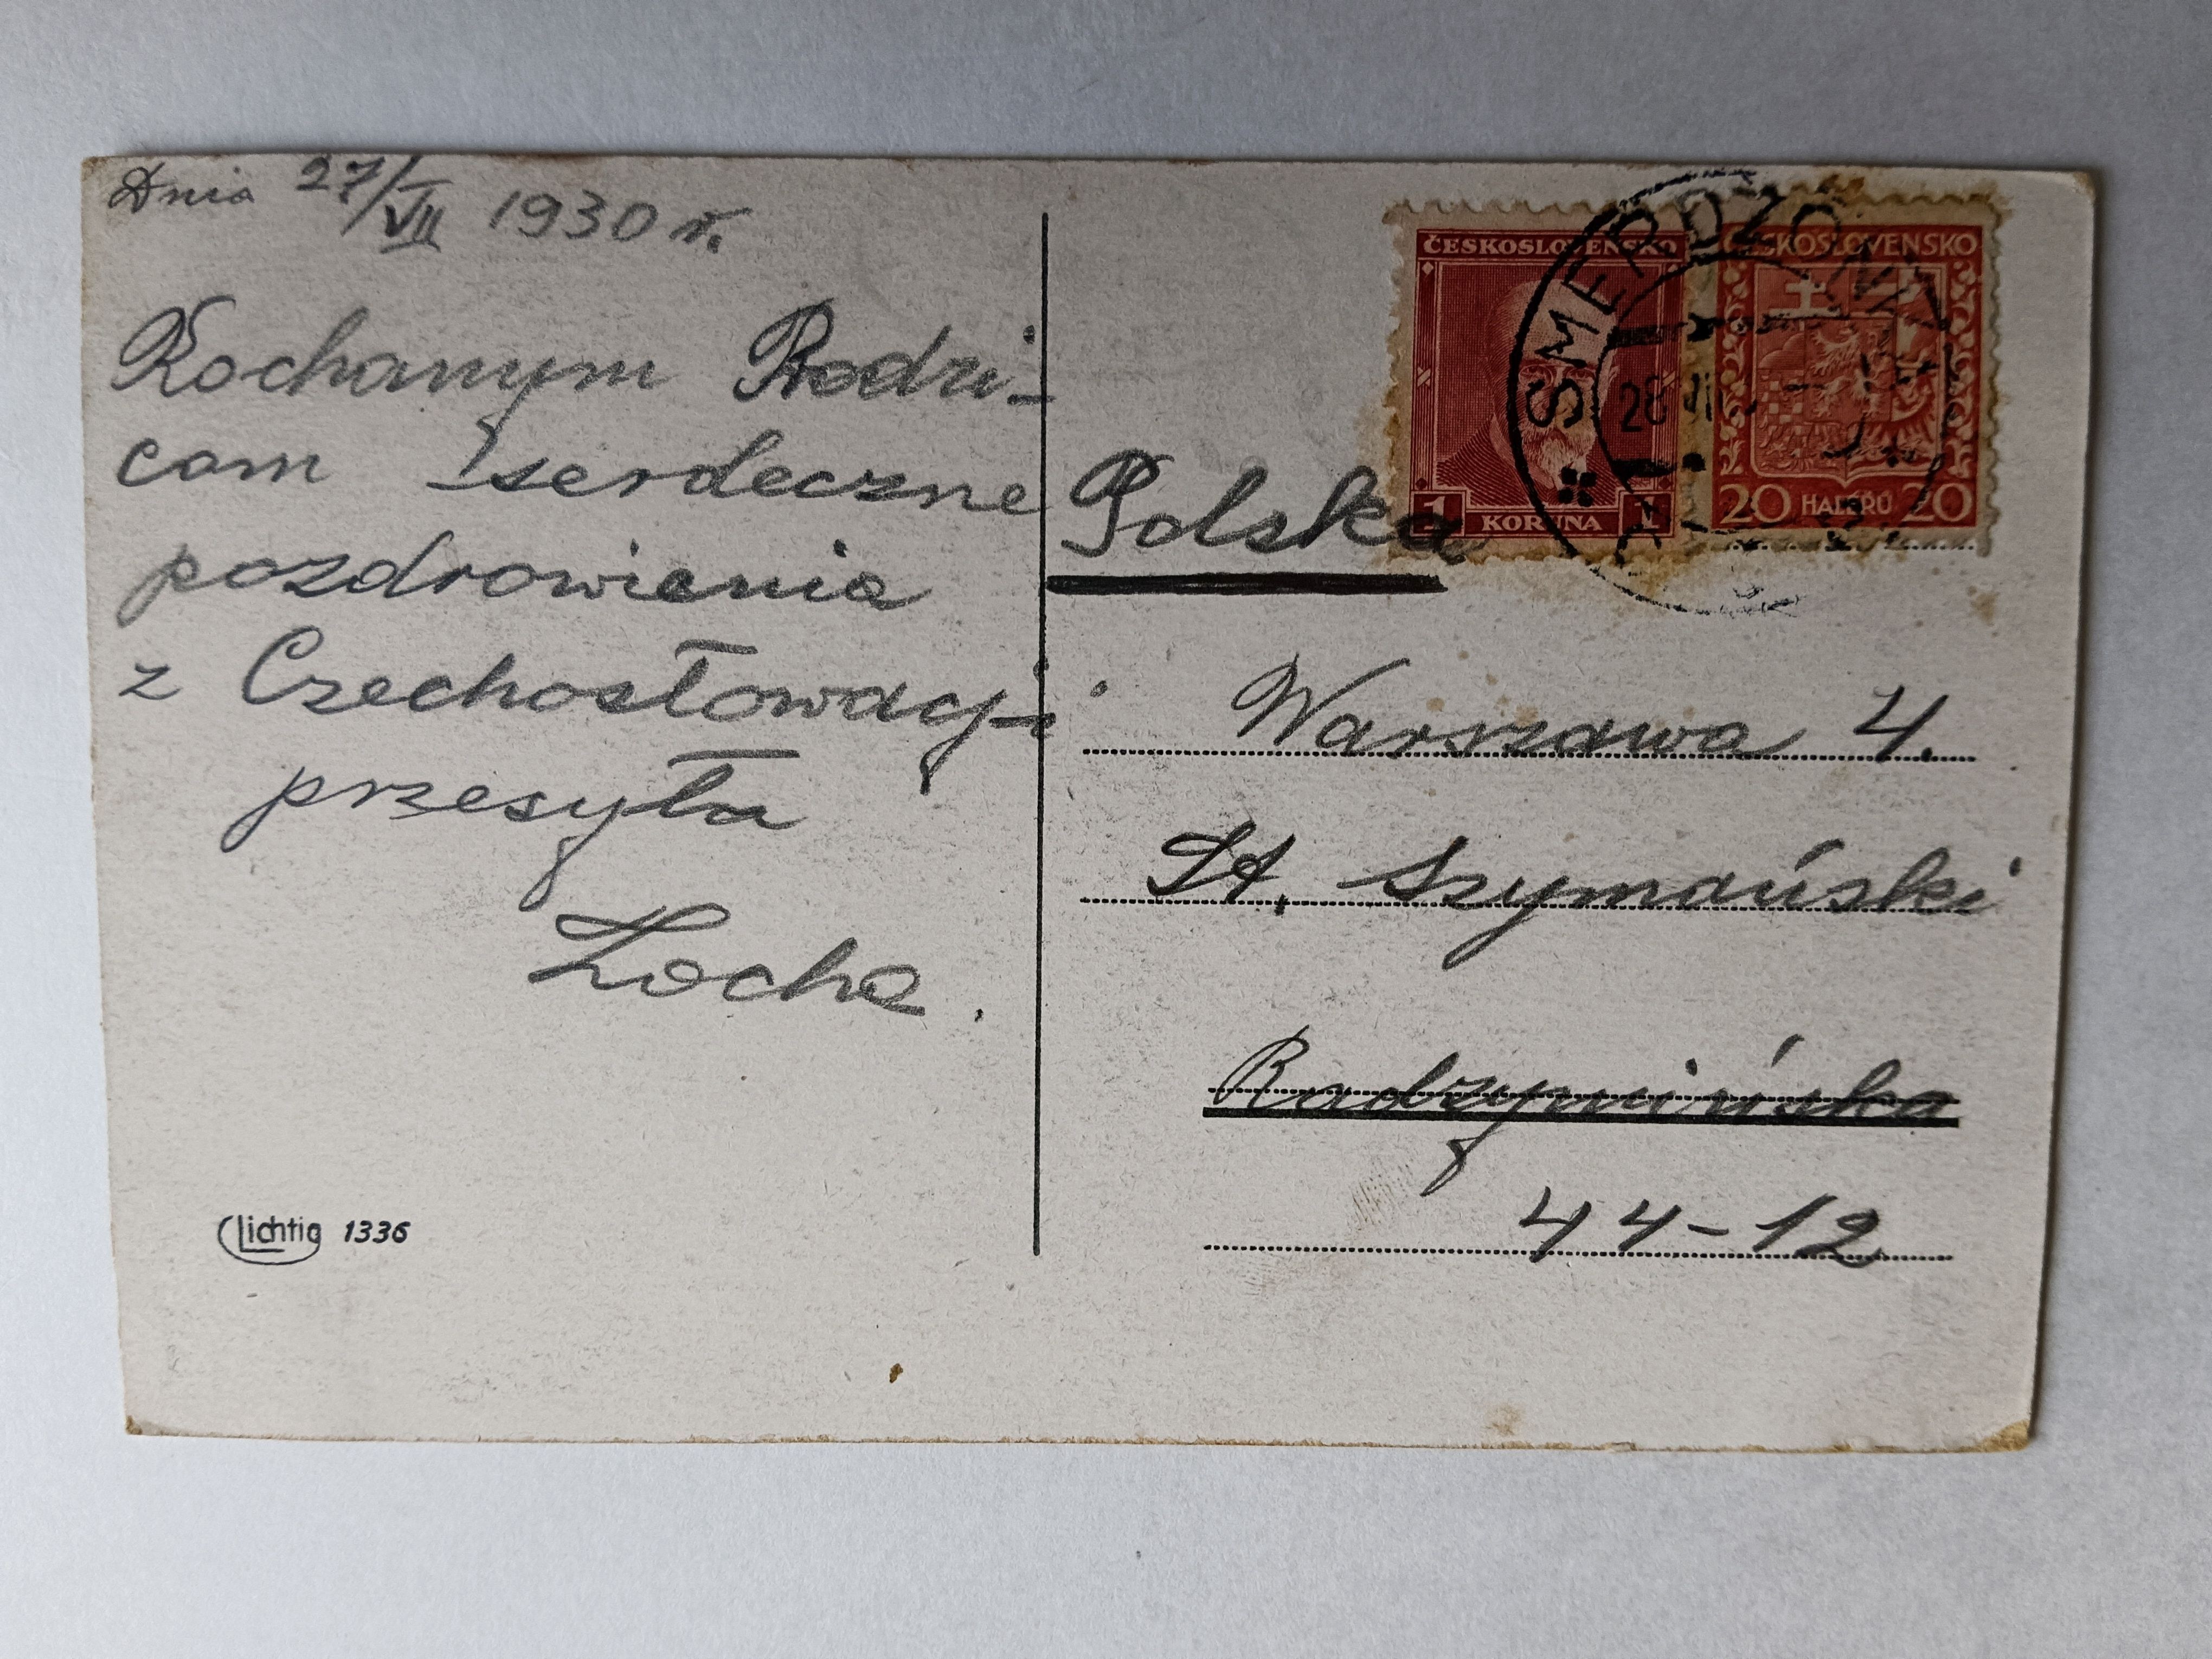 Dnia 27/VII 1930 r.
Kochanym Rodzi-
com serdeczne
pozdrowienia
z Czechosłowacji
przesyła
Zocha.
Lichtig 1336
ČESKOSLOVENSKO
1 KORUNA 1
ČESKOSLOVENSKO
20 HALÉŘŮ 20
SMERDŽONKA
28 VII
Polska
Warszawa 4.
St. Szymański
Radzymińska
44-12